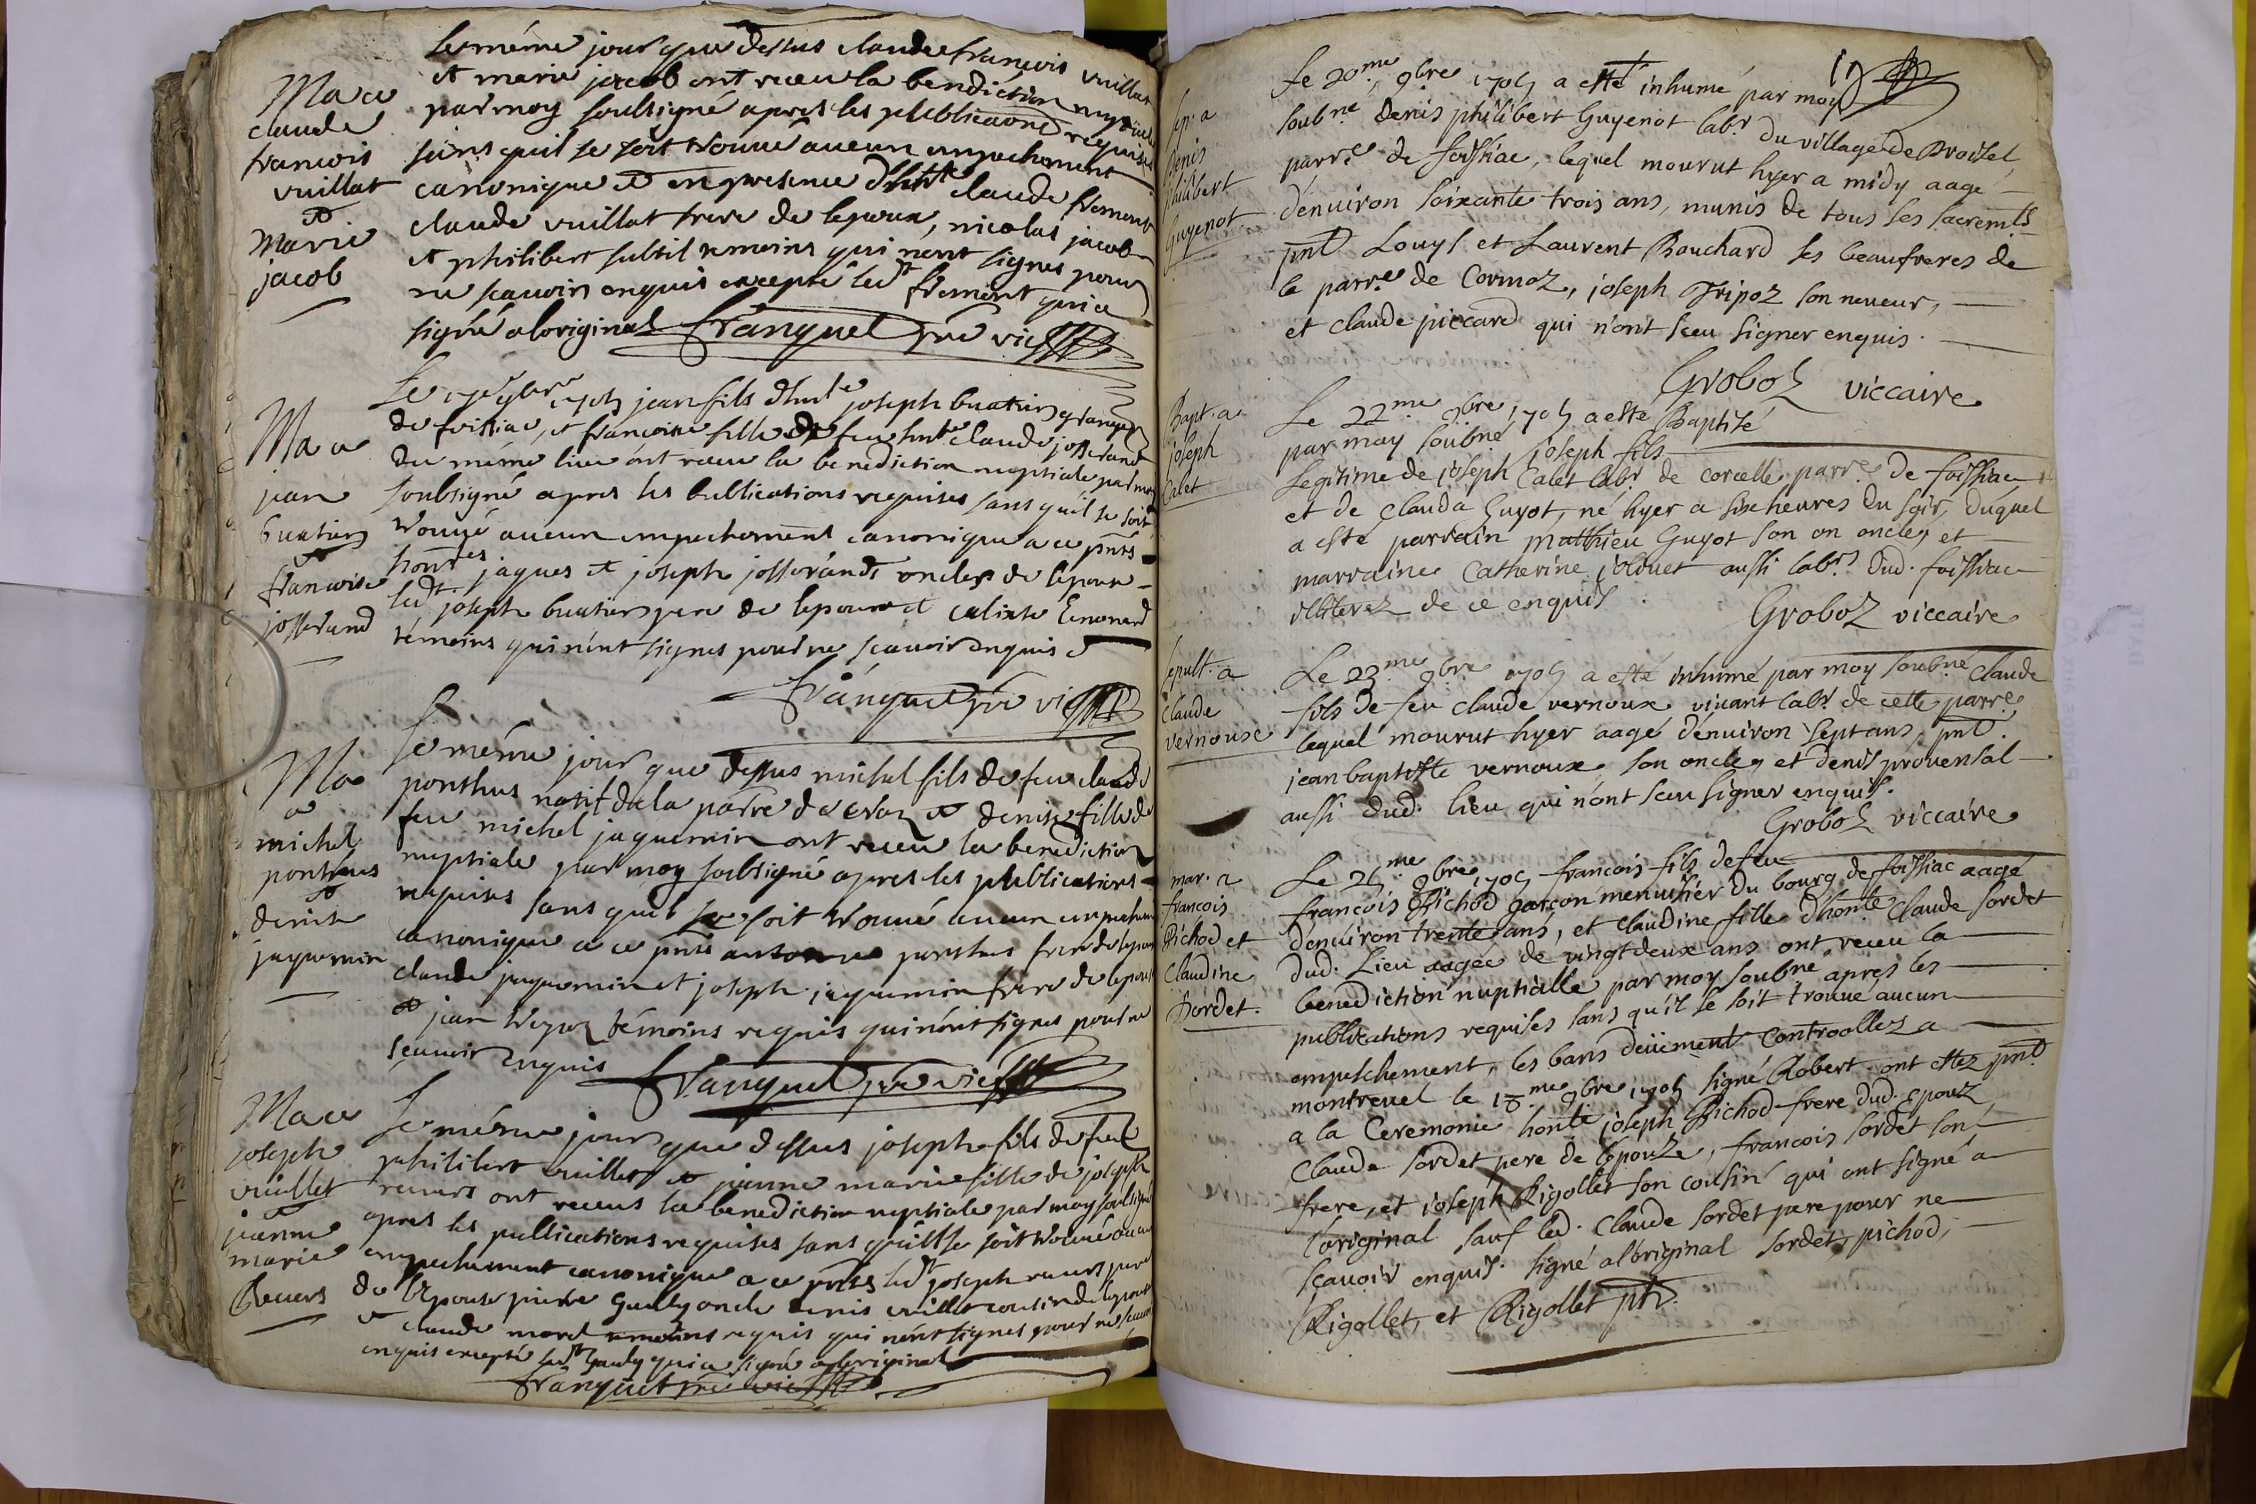 le même jour que dessus claude francois vuillat
et marie jacob ont receu la benediction nuptiale
par moy soubsigné apres les publications requises
sans quil se soit trouué aucun empechement
canonique et en presence d'hnte claude frement
claude vuillat frere de lepoux, nicolas jacob
et philibert subtil temoins qui nont signes pour
ne scauoir enquis excepté ledt frement qui a
signé a loriginal franquet ptre vic
Ma a
claude
francois
vuillat
et
Marie
jacob
jean fils d'hnte joseph buatier granger
de foissiac, et francoise fille de feu hnte claude josserand
du même lieu ont receu la benediction nuptiale par moy
soubsigné apres les publications requises sans quil se soit
trouué aucun empechement canonique a ce pnts
honres jaques et joseph josserands oncles de lepouse
ledt joseph buatier pere de lepoux et calixte Emonard
témoins qui nont signes pour ne scauoir enquis
franquet ptre vic
Ma a
jean
buatier
et
francoise
josserand
le même jour que dessus michel fils de feu claude
ponthus natif de la parre de et denise fille de
feu michel jaquemin ont receu la benediction
nuptiale par moy soubsigné apres les publications
requises sans quil se soit trouué aucun empechem
canonique a ce pnts antoine ponthus frere de lepoux
claude jaquemin et joseph jaquemin frere de lepouse
et jean témoins requis qui nont signes pour ne
scauoir enquis franquet ptre vic
Ma
a
michel
ponthus
et
denise
jaquemin
le même jour que dessus joseph fils de feu
philibert vuillet et jeanne marie fille de joseph
reuers ont receus la benediction nuptiale par moy soubsigné
apres les publications requises sans quil se soit trouué aucun
empechement canonique a ce pnts ledt joseph reuers pere
de lepouse pierre Gauly oncle denis vuillet cousin de lepoux
et claude morel temoins requis qui nont signes pour ne scauoir
enquis excepté ledt Gauly qui a signé a loriginal
franquet ptre vic
Ma a
joseph
vuillet
et
jeanne
marie
Reuers
Le 20me 9bre 1705 a esté inhumé par moy
soubné denis philibert Guyenot labr du village de Broissel
parre de foissiac, lequel mourut hyer a midy aagé
d'enuiron soixante trois ans, munis de tous ses sacremts
pnt Louys et Laurent Bouchard ses beaufreres de
la parre de Cormoz, joseph Tripoz son neueur,
et claude piccard qui n'ont sceu signer enquis.
Groboz viccaire
sep. a
Denis
philibert
Guyenot
Le 22me 9bre 1705 a esté Baptisé
par moy soubné joseph fils
Legitime de joseph Calet labr de corcelle parre de foissiac
et de Clauda Guyot, né hyer a six heures du soir, duquel
a esté parrain matthieu Guyot son on oncle, et
marraine Catherine joluet aussi labr dud. foissiac
illiterez de ce enquis.
Groboz viccaire
Bapt. a
joseph
Calet
Le 23me 9bre 1705 a esté inhumé par moy soubné Claude
fils de feu Claude vernoux viuant labr de cette parre,
lequel mourut hyer aagé d'enuiron sept ans, pnt
jean baptiste vernoux son oncle, et denis prouensal
aussi dud. lieu qui n'ont sceu signer enquis.
Groboz viccaire
sepult. a
Claude
vernoux
Le 9bre 1705 francois fils de feu
francois Pichod garçon menusier du bourg de foissiac aagé
d'enuiron trente ans, et Claudine fille d'honte Claude Sordet
dud. Lieu aagée de vingt deux ans ont receu la
benediction nuptialle par moy soubné apres les
publications requises sans qu'il se soit trouué aucun
empeschement, les bans deüement controollez a
montreuel le 18me 9bre 1705 signé Robert. ont estez pnt
a la Ceremonie honte joseph Pichod frere dud. Epoux,
Claude Sordet pere de l'épouze, francois Sordet son
frere, et joseph Rigollet son cousin qui ont signé a
l'original sauf led. Claude Sordet pere pour ne
scauoir enquis. signé a l'original Sordet, pichod,
Rigollet, et Rigollet ptr.
mar. a
francois
Pichod et
Claudine
Sordet.